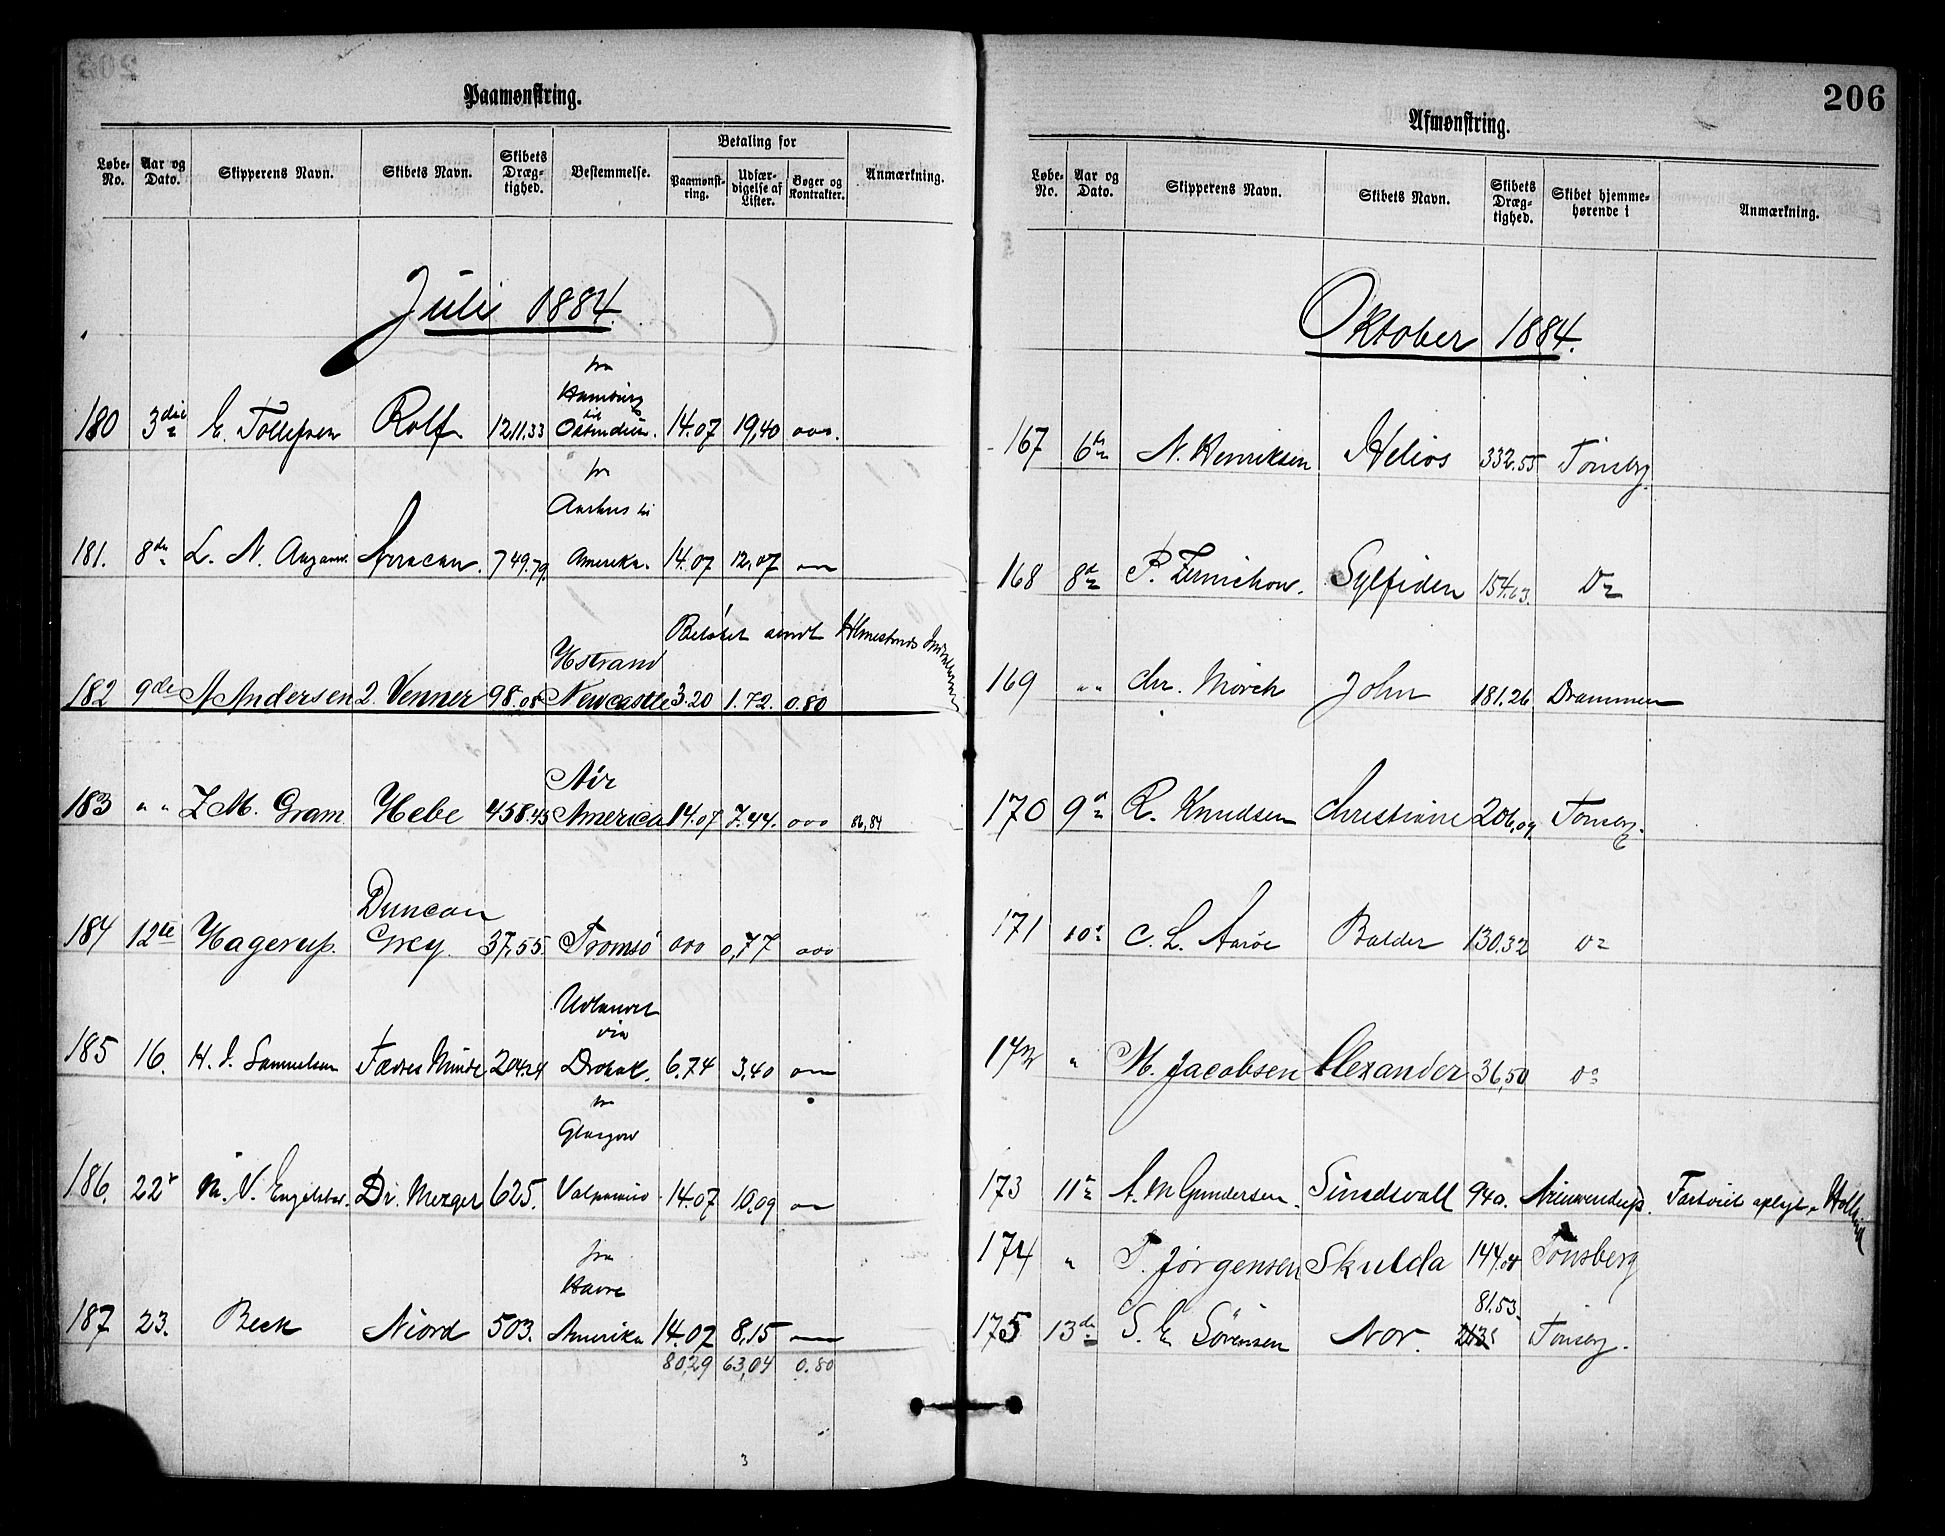 Paamønstring.
Løbe-No. Aar og Dato. Skipperens Navn. Skibets Navn. Skibets Dræg-tighed. Bestemmelse. Betaling for Paamønst-ring. Udfær-digelse af Lister. Bøger og Kontrakter. Anmærkning.
Juli 1884.
fra
Hamburg
til
180 3die E. Tollefsen Rolf 1211.33 Ostindien. 14.07 19,40 ooo.
fra
Aarhus til
181. 8de L. N. Arracan. 749.79. Amerika. 14.07 12.07
Beløbet sendt
Hstrand
182 9de A Andersen 2 Venner 98.08 Newcastle 3.20 1.72. 0.80
Nør
183 " " Z M. Gram Hebe 458.45 America 14.07 7.44. ooo 86,84
Duncan
184 12te Hagerup. Grey. 37,55. Tromsö ooo 0,77 ooo
Udlandet
via
185 16. H. J. Samuelsen Fædres Minde 204.24 Drøbak. 6.74 3,40
fra
Glasgow
186. 22 M. V. Dr. Mezger 625. Valparaiso 14.07 10.09
fra
Havre
187 23. Beck Niord 503. Amerika 14.07 8,15
80,29 63,04 0.80
3
206
Afmønstring.
Løbe-No. Aar og Dato. Skipperens Navn. Skibets Navn. Skibets Dræg-tighed. Skibet hjemme-hørende i Anmærkning.
Oktober 1884.
167 6te N. Henriksen Helios 332.55 Tönsberg.
168 8de P. Zernichow. Sylfiden 154.03. Do
169 " " Chr. Mörch John 181.26 Drammen
170 9de R. Knudsen Christiane 206,09. Tönsberg.
171 10de C. L. Aarøe Balder 130.32 Do
172 " M. Jacobsen Alexander 36,50 Do
173 11te A. M Gundersen. Sundsvall 940. Fartøiet oplagt
174 " T. Jørgensen Skulda 144.08 Tönsberg
81.53.
175 13de S. E Sörensen Nor. Tönsberg.